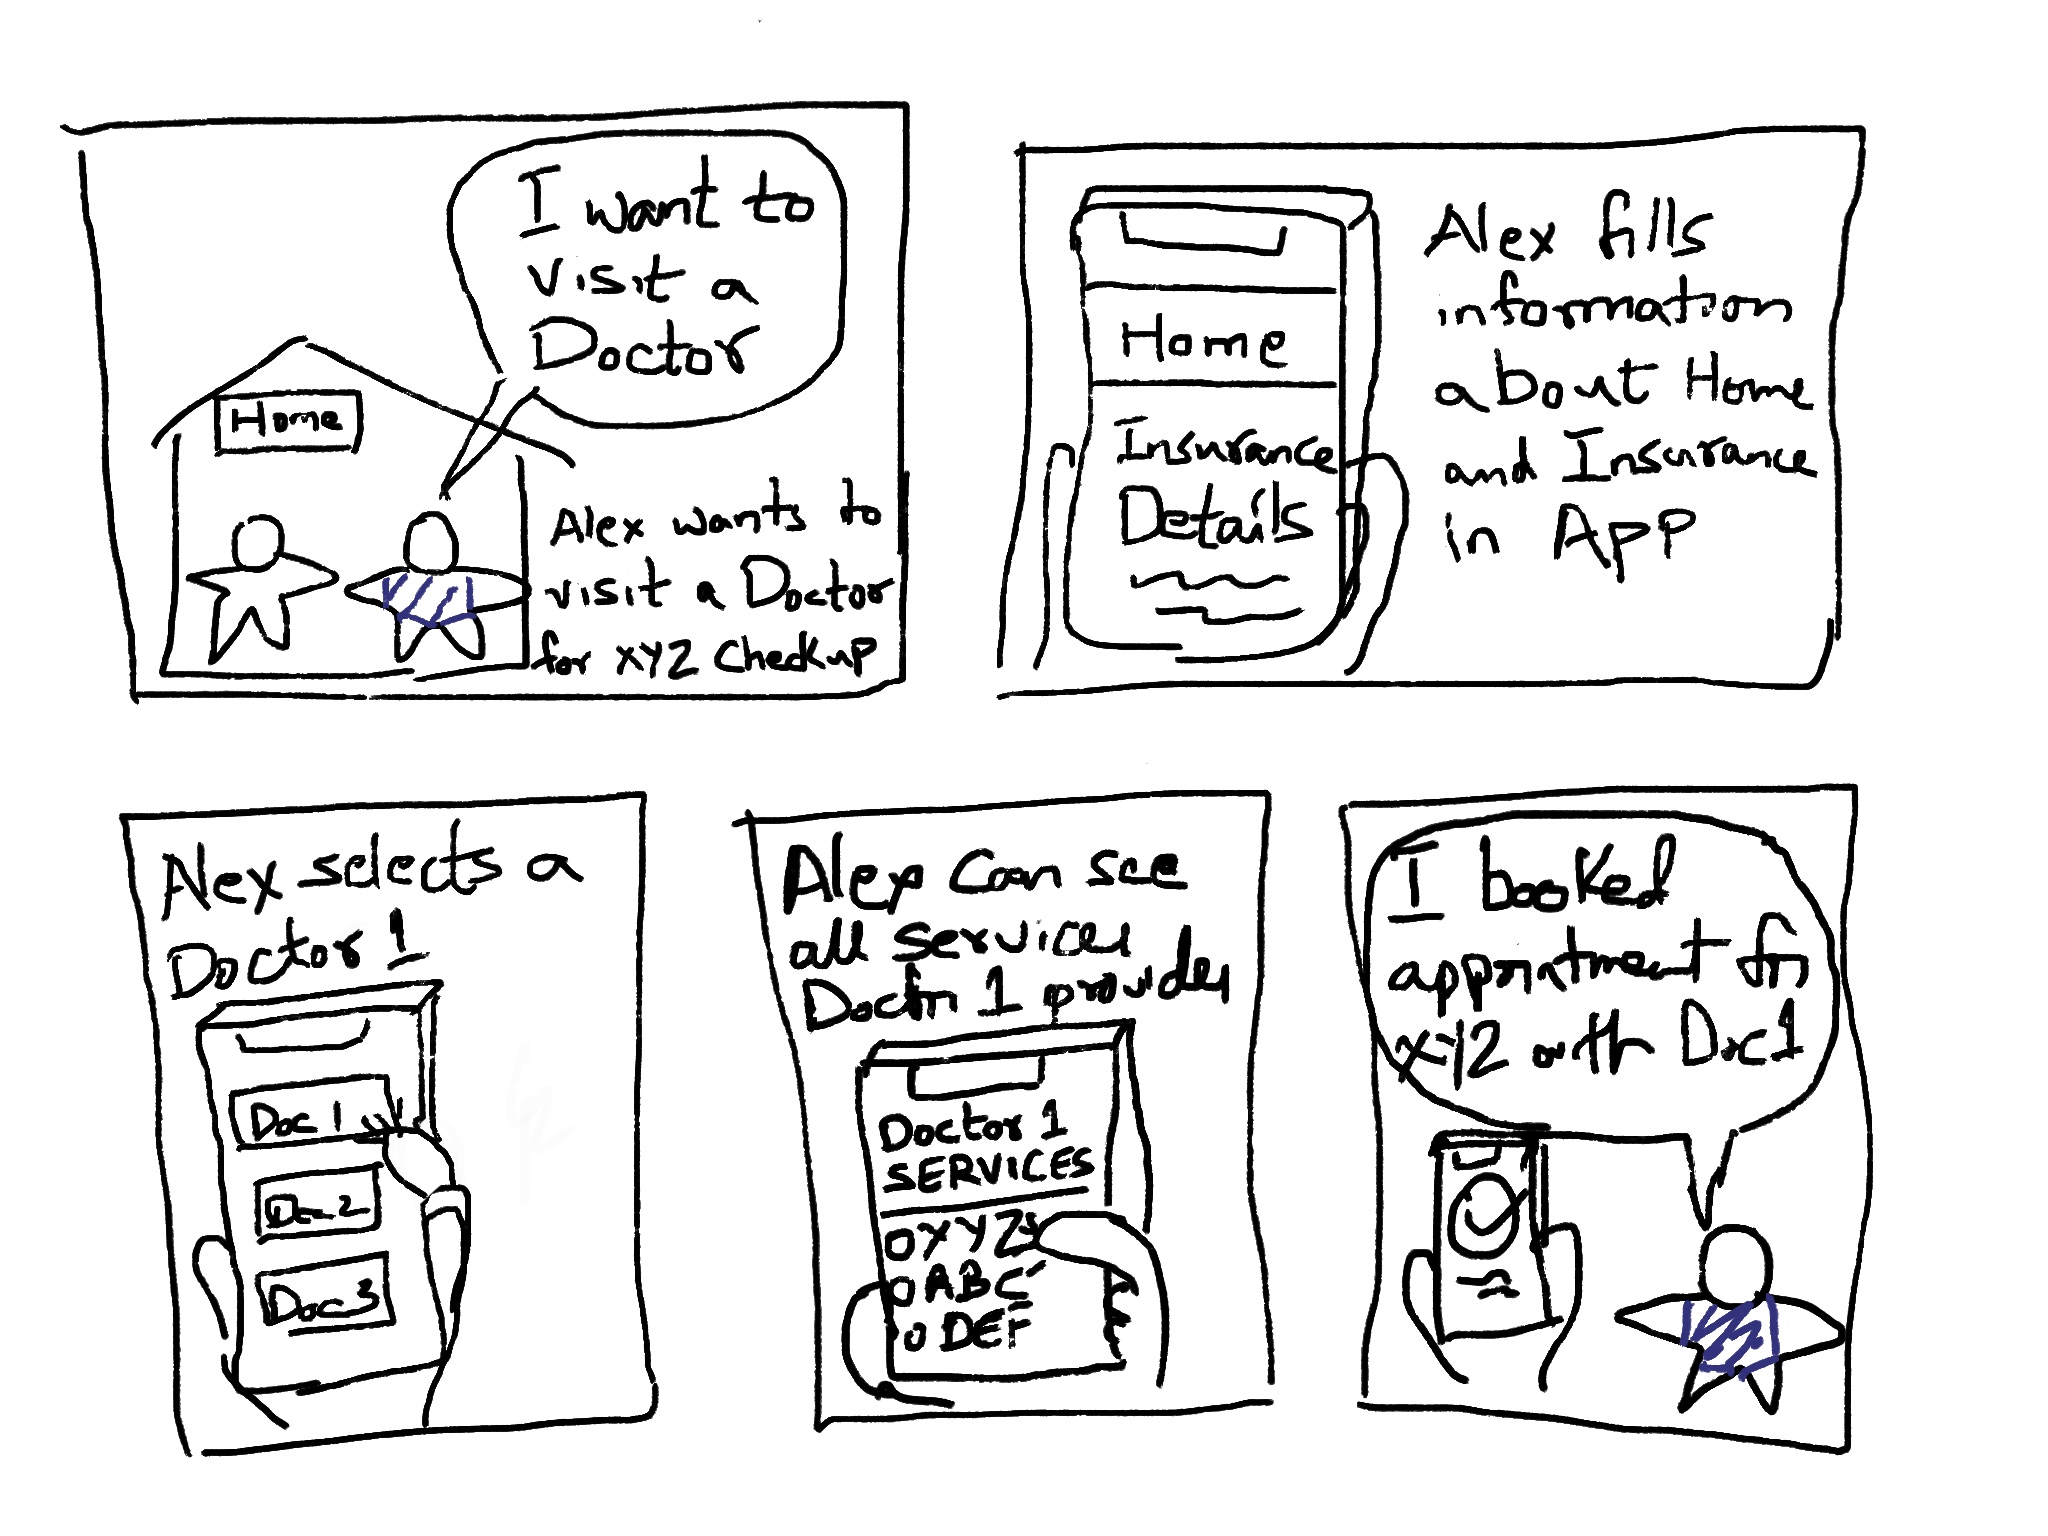 I want to
visit a
Doctor
Home
Alex wants to
visit a Doctor
for XYZ Checkup
Home
Insurance
Details
Alex fills
information
about Home
and Insurance
in App
Alex selects a
Doctor 1
Doc 1
Doc 2
Doc 3
Alex can see
all services
Doctor 1 provides
Doctor 1
SERVICES
XYZ
ABC
DEF
I booked
appointment for
XYZ with Doc 1